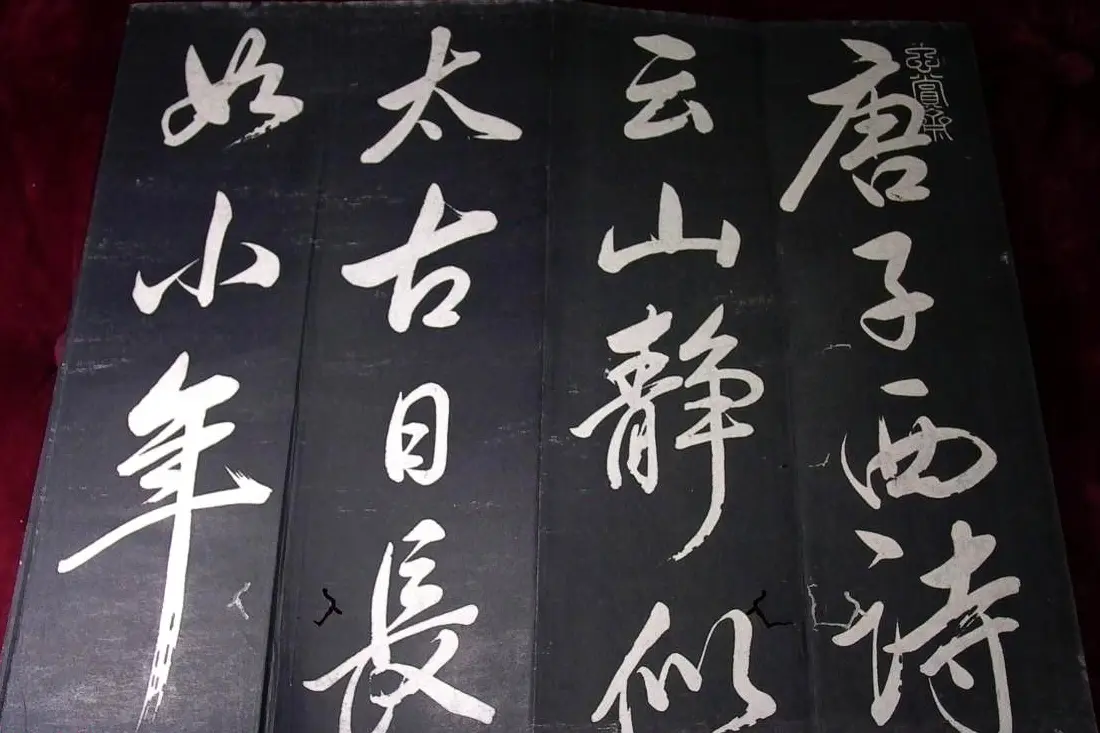 唐子西诗
云山静似
太古日長
如小年